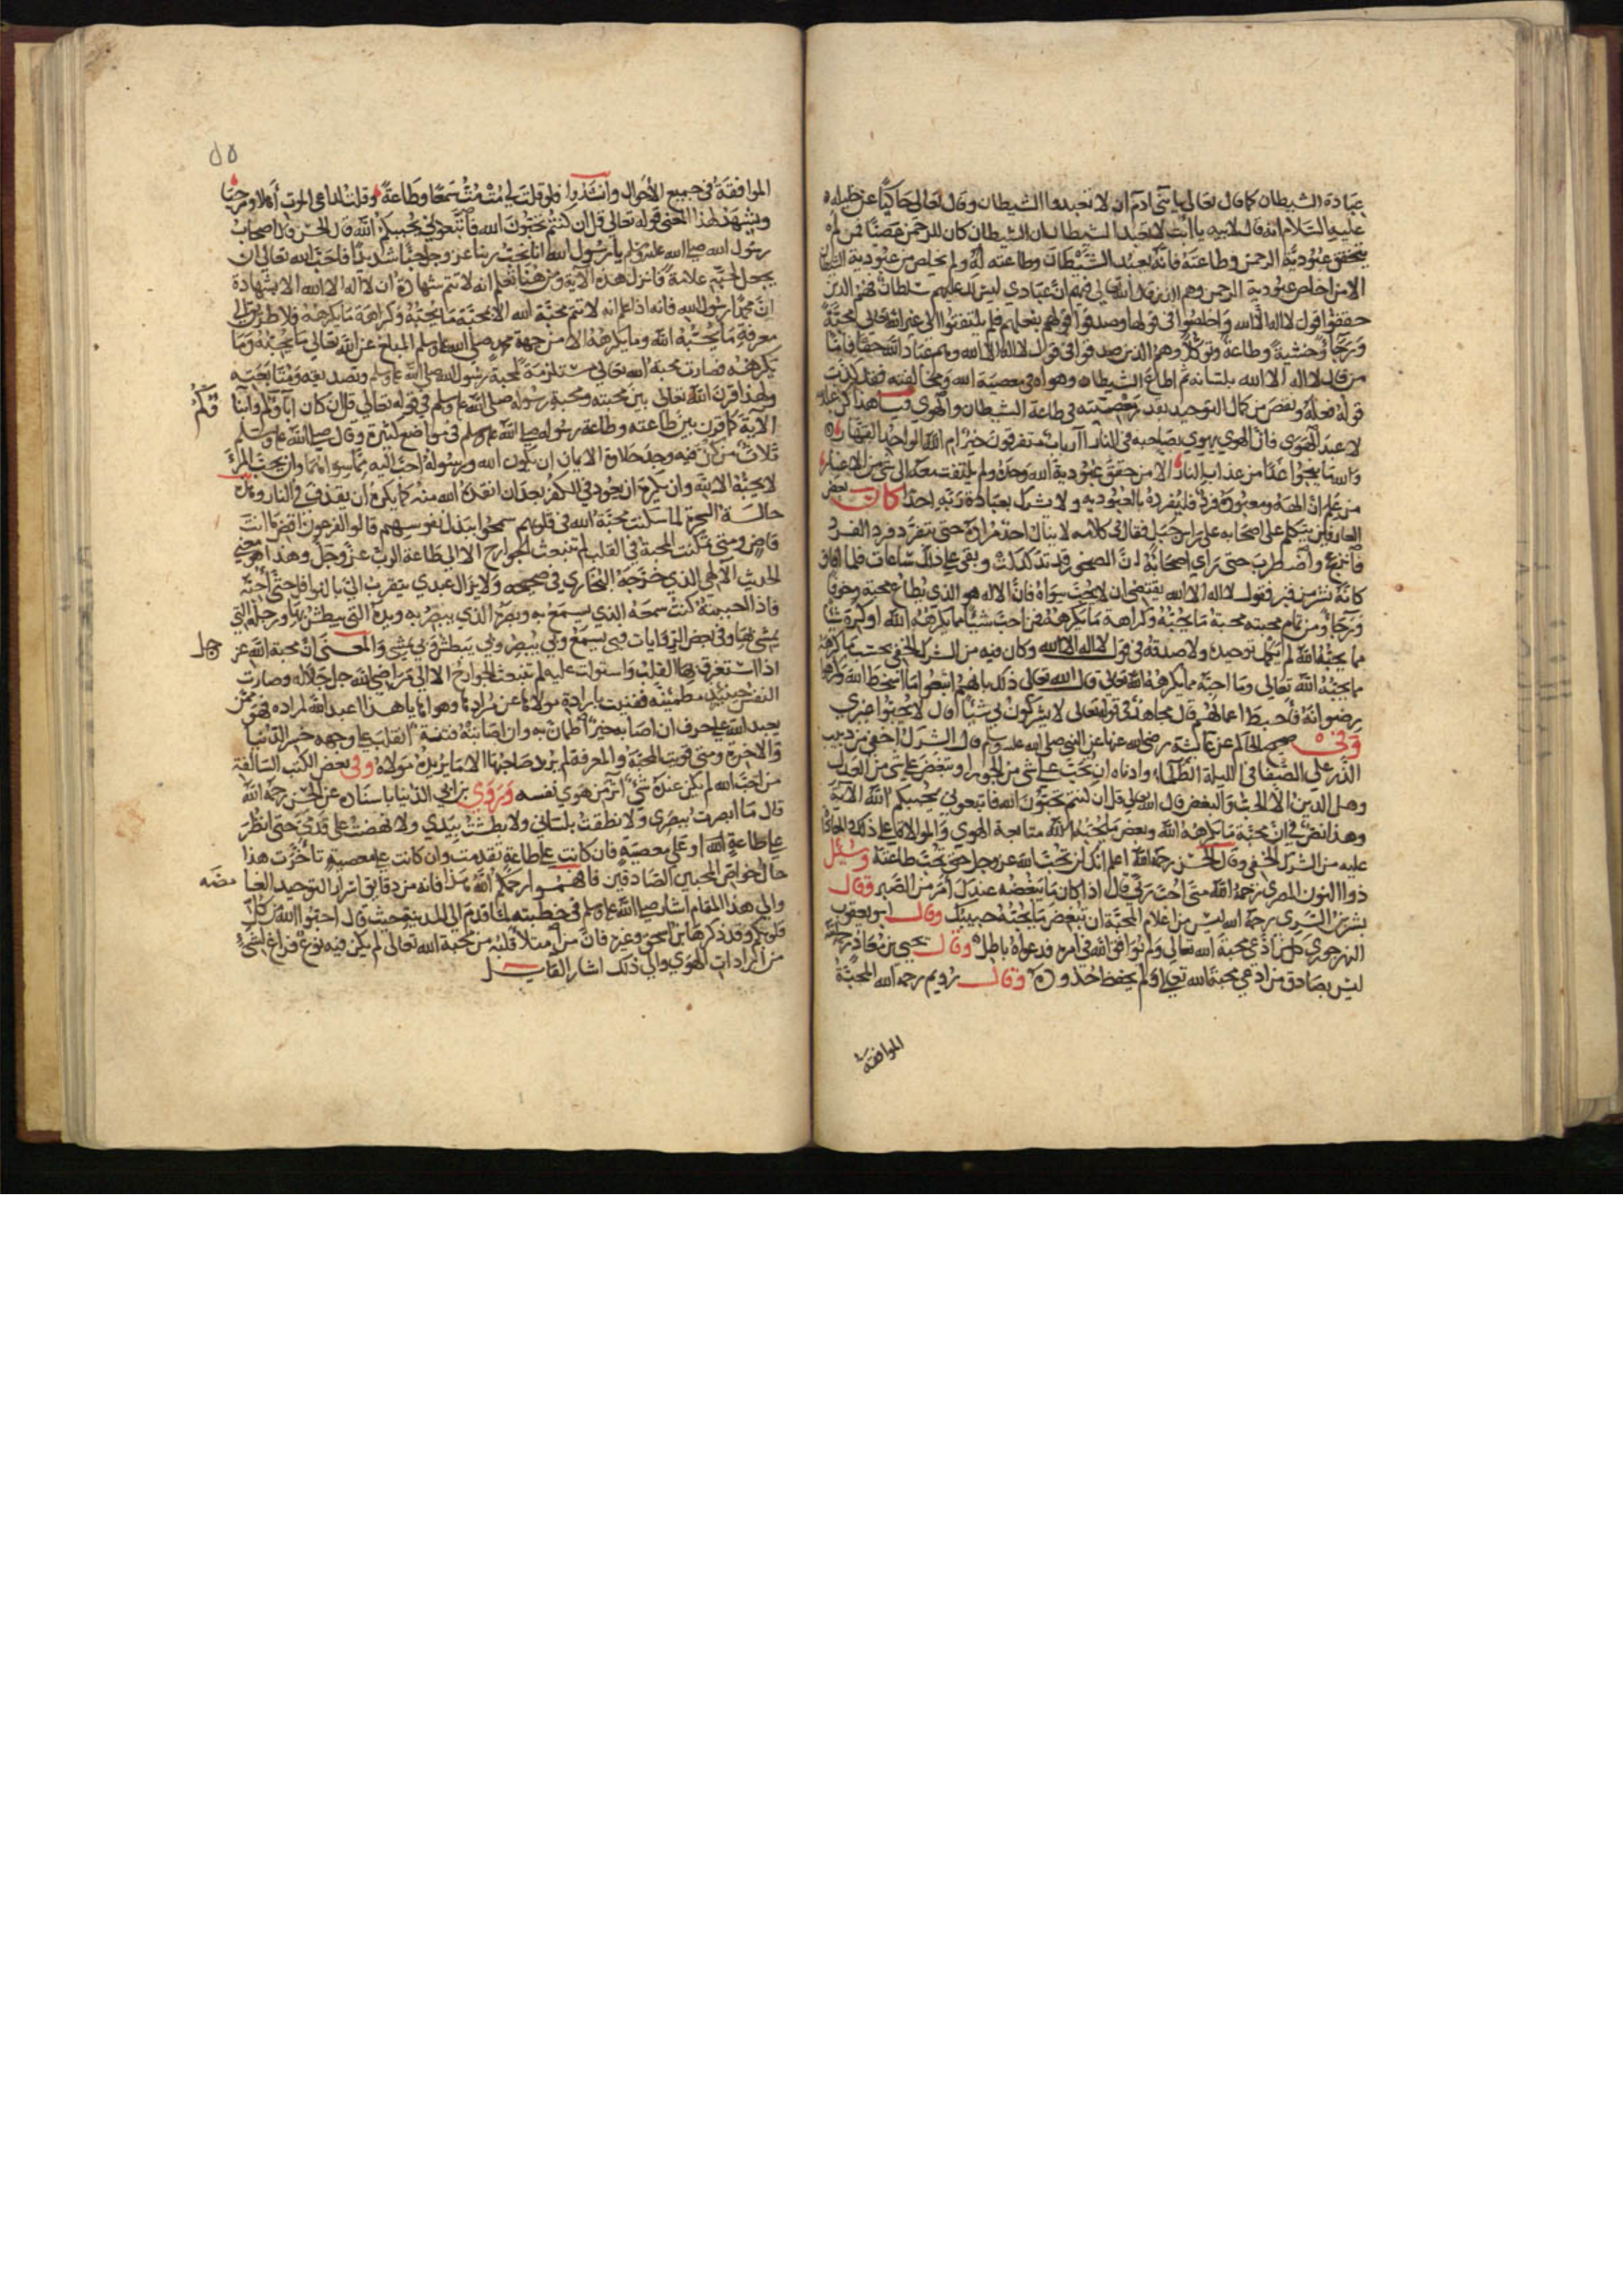 عبادة الشيطان كما قال تعالى يا بني ادم ان لا تعبدوا الشيطان وقال تعالى حاكيا عن خليله
عليه السلام انه قال لابيه يا ابت لا تعبد الشيطان ان الشيطان كان للرحمن عصيا فمن لم
يتحقق عبودية الرحمن وطاعته فانه يعبد الشيطان وطاعته له ولم يخلص من عبودية الشيطان
الا من اخلص عبودية الرحمن وهم الذين قال الله تعالى فيهم ان عبادي ليس لك عليهم سلطان فهم الذين
حققوا قول لا اله الا الله واخلصوا في قولها وصدقوا قولهم بفعلهم فلم يلتفتوا الى غير الله تعالى محبة
ورجاء وخشية وطاعة وتوكلا وهم الذين صدقوا في قول لا اله الا الله وهم عباد الله حقا فاما
من قال لا اله الا الله بلسانه ثم اطاع الشيطان وهواه في معصية الله ومخالفته فقد كذب
قوله فعله ونقص من كمال التوحيد بقدر معصيته في طاعة الشيطان والهوى فيا هذا كن عبد الله
لا عبد الهوى فان الهوى يهوي بصاحبه في النار اارباب متفرقون خير ام الله الواحد القهار
والله ما ينجوا غدا من عذاب النار الا من حقق عبودية الله وحده ولم يلتفت معه الى شي من الاغيار
من علم ان الهه ومعبوده فرد فليفرده بالعبودية ولا يشرك بعبادة ربه احدا كان بعض
العارفين يتكلم على اصحابه على راس جبل فقال في كلامه لا ينال احد مراده حتى يتفرد فردا لفرد
فانزعج واضطرب حتى راى اصحابه ان الصخور قد تدكدكت وبقي على ذلك ساعات فلما افاق
كانه نشر من قبر فقول لا اله الا الله يقتضي ان لا يحب سواه فان الاله هو الذي يطاع محبة وخوفا
ورجاء ومن تمام محبته محبة ما يحبه وكراهة ما يكرهه فمن احب شيئا مما يكرهه الله او كره شيئا
مما يحبه الله لم يكمل توحيده ولا صدقه في قول لا اله الا الله وكان فيه من الشرك الخفي بحسب ما كرهه
مما يحبه الله تعالى وما احبه مما يكرهه الله تعالى قال الله تعالى ذلك بانهم اتبعوا ما اسخط الله وكرهوا
رضوانه فاحبط اعمالهم قال مجاهد في قوله تعالى لا يشركون بي شيئا قال لا يحبوا غيري
وفي صحيح الحاكم عن عائشة رضي الله عنها عن النبي صلى الله عليه وسلم قال الشرك اخفى من دبيب
الذر على الصفا في الليلة الظلماء وادناه ان تحب على شي من الجور او تبغض على شي من العدل
وهل الدين الا الحب والبغض قال الله تعالى قل ان كنتم تحبون الله فاتبعوني يحببكم الله الاية
وهذا نص في ان محبة ما يكرهه الله وبغض ما يحبه الله متابعة الهوى والموالاة على ذلك والمعاداة
عليه من الشرك الخفي وقال الحسن رحمه الله اعلم انك لن تحب الله عز وجل حتى تحب طاعته وسئل
ذوا النون المصري رحمه الله متى احب ربي قال اذا كان ما يبغضه عندك امر من الصبر وقال
بشر بن السري رحمه الله ليس من اعلام المحبة ان تبغض ما يحبه حبيبك وقال ابو يعقوب
النهرجوري كل من ادعى محبة الله تعالى ولم يوافق الله في امره فدعواه باطلة وقال يحيى بن معاذ رحمه الله
ليس بصادق من ادعى محبة الله تعالى ولم يحفظ حدوده وقال رويم رحمه الله المحبة
الموافقة
الموافقة في جميع الاحوال وانشدوا ولو قلت لي مت مت سمعا وطاعة وقلت لداعي الموت اهلا ومرحبا
ويشهد لهذا المعنى قوله تعالى قل ان كنتم تحبون الله فاتبعوني يحببكم الله قال الحسن قال اصحاب
رسول الله صلى الله عليه وسلم يا رسول الله انا نحب ربنا عز وجل حبا شديدا فاحب الله تعالى ان
يجعل لحبهم علامة فانزل هذه الاية ومن هنا تعلم انه لا تتم شهادة ان لا اله الا الله الا بشهادة
ان محمدا رسول الله فانه اذا علم انه لا تتم محبة الله الا بمحبة ما يحبه وكراهة ما يكرهه ولا طريق الى
معرفة ما يحبه الله وما يكرهه الا من جهة محمد صلى الله عليه وسلم المبلغ عن الله تعالى ما يحبه وما
يكرهه فصارت محبة الله تعالى مستلزمة لمحبة رسول الله صلى الله عليه وسلم وتصديقه ومتابعته
ولهذا قرن الله تعالى بين محبته ومحبة رسوله صلى الله عليه وسلم في قوله تعالى قل ان كان اباؤكم وابنا
الاية كما قرن بين طاعته وطاعة رسوله صلى الله عليه وسلم في مواضع كثيرة وقال صلى الله عليه وسلم
ثلاث من كن فيه وجد حلاوة الايمان ان يكون الله ورسوله احب اليه مما سواهما وان يحب المرء
لا يحبه الا لله وان يكره ان يعود في الكفر بعد ان انقذه الله منه كما يكره ان يقذف في النار وهذه
حالة السحرة لما سكنت محبة الله في قلوبهم سمحوا ببذل نفوسهم قالوا لفرعون اقض ما انت
قاض ومتى تمكنت المحبة في القلب لم تنبعث الجوارح الا الى طاعة الرب عز وجل وهذا هو معنى
الحديث الالهي الذي خرجه البخاري في صحيحه ولا يزال عبدي يتقرب الي بالنوافل حتى احبه
فاذا احببته كنت سمعه الذي يسمع به وبصره الذي يبصر به ويده التي يبطش بها ورجله التي
يمشي بها وفي بعض الروايات فبي يسمع وبي يبصر وبي يبطش وبي يمشي والمعنى ان محبة الله عز
وجل
اذا استغرق بها القلب واستولت عليه لم تنبعث الجوارح الا الى مراضي الله جل جلاله وصارت
النفس حينئذ مطمئنة ففنيت بارادة مولاها عن مرادها وهواها يا هذا اعبد الله لمراده فهو فمن
يعبد الله على حرف ان اصابه خير اطمان به وان اصابته فتنة انقلب على وجهه خسر الدنيا
والاخرة ومتى قويت المحبة والمعرفة لم يرد صاحبها الا ما يريد مولاه وفي بعض الكتب السالفة
من احب الله لم يكن عنده شي اثر من هوى نفسه وروى بن ابي الدنيا باسناده عن الحسن رحمه الله
قال ما ابصرت ببصري ولا نطقت بلساني ولا بطشت بيدي ولا نهضت على قدمي حتى انظر
على طاعة الله او على معصية فان كانت على طاعة تقدمت وان كانت على معصية تاخرت هذا
حال خواص المحبين الصادقين فافهموا رحمكم الله هذا فانه من دقايق اسرار التوحيد الغا
مضه
والى هذا المقام اشار صلى الله عليه وسلم في خطبته لما قدم الى المدينة حيث قال احبوا الله من كل
قلوبكم وقد ذكرها ابن اسحق وغيره فان من امتلا قلبه من محبة الله تعالى لم يكن فيه نوع فراغ لشي
من ارادات الهوى والى ذلك اشار القايل